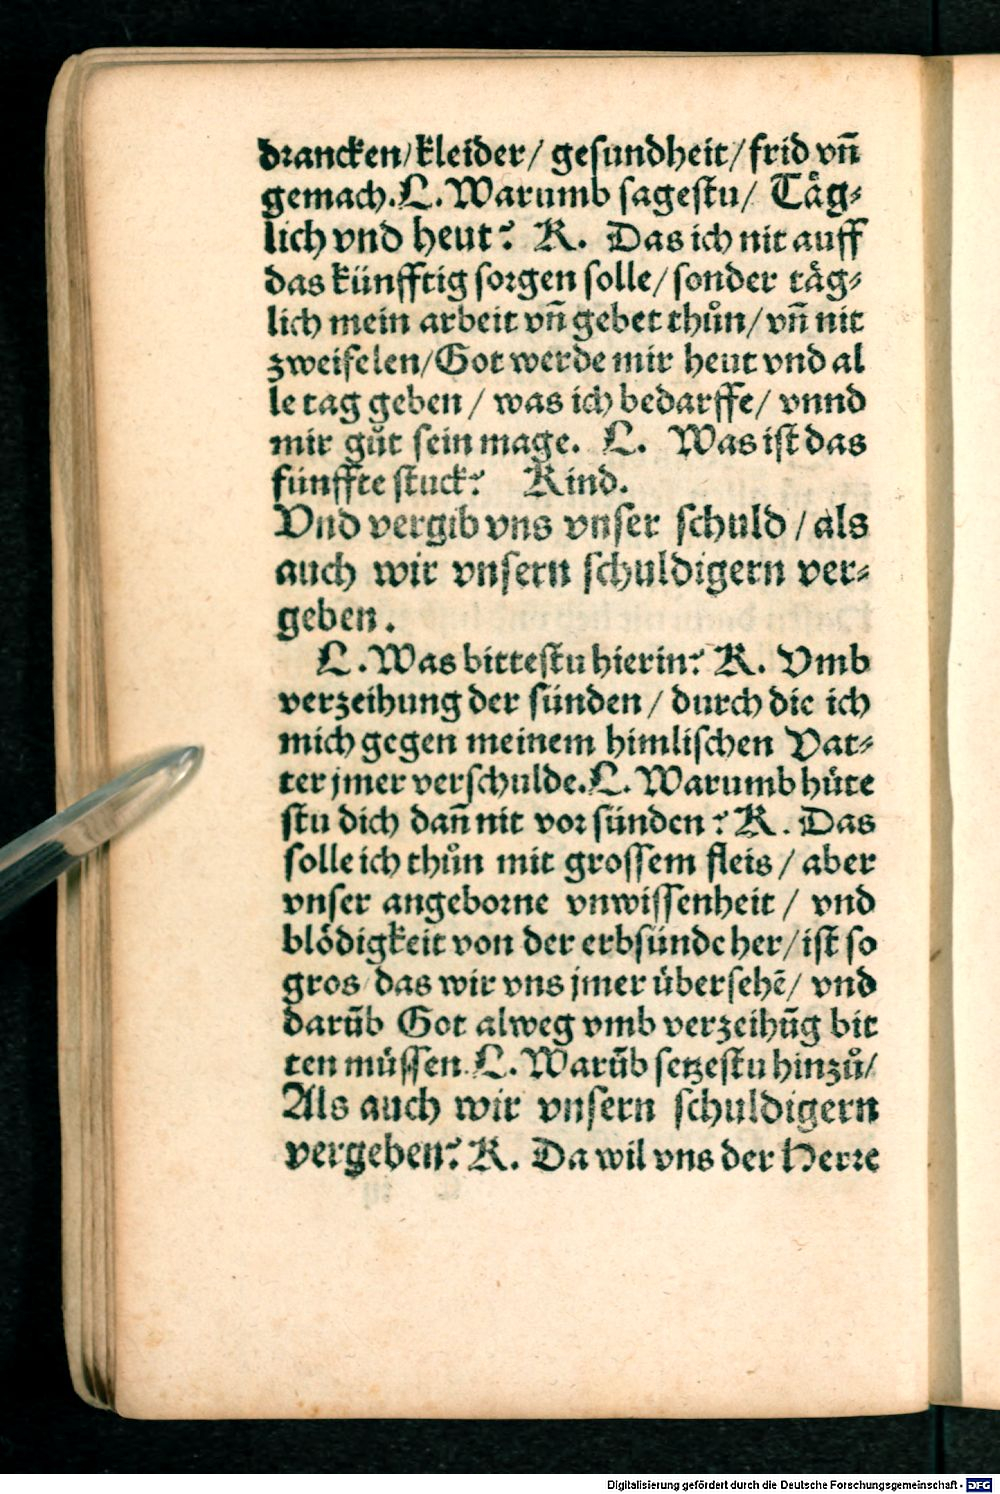 drancken/ kleider/ gesundheit/ frid vñ
gemach. L. Warumb sagestu/ Täg⸗
lich vnd heut? K. Das ich nit auff
das künfftig sorgen solle/ sonder täg⸗
lich mein arbeit vñ gebet thůn/ vñ nit
zweifelen/ Got werde mir heut vnd al
le tag geben/ was ich bedarffe/ vnnd
mir gůt sein mage. L. Was ist das
fünffte stuck? Kind.
Vnd vergib vns vnser schuld / als
auch wir vnsern schuldigern ver⸗
geben.
L. Was bittestu hierin? K. Vmb
verzeihung der sünden/ durch die ich
mich gegen meinem himlischen Vat⸗
ter jmer verschulde. L. Warumb hüte
stu dich dañ nit vor sünden? K. Das
solle ich thůn mit grossem fleis/ aber
vnser angeborne vnwissenheit/ vnd
blödigkeit von der erbsünde her/ ist so
gros/ das wir vns jmer übersehē/ vnd
darūb Got alweg vmb verzeihūg bit
ten müssen. L. Warūb setzestu hinzů/
Als auch wir vnsern schuldigern
vergeben? K. Da wil vns der Herre
Digitalisierung gefördert durch die Deutsche Forschungsgemeinschaft - DFG